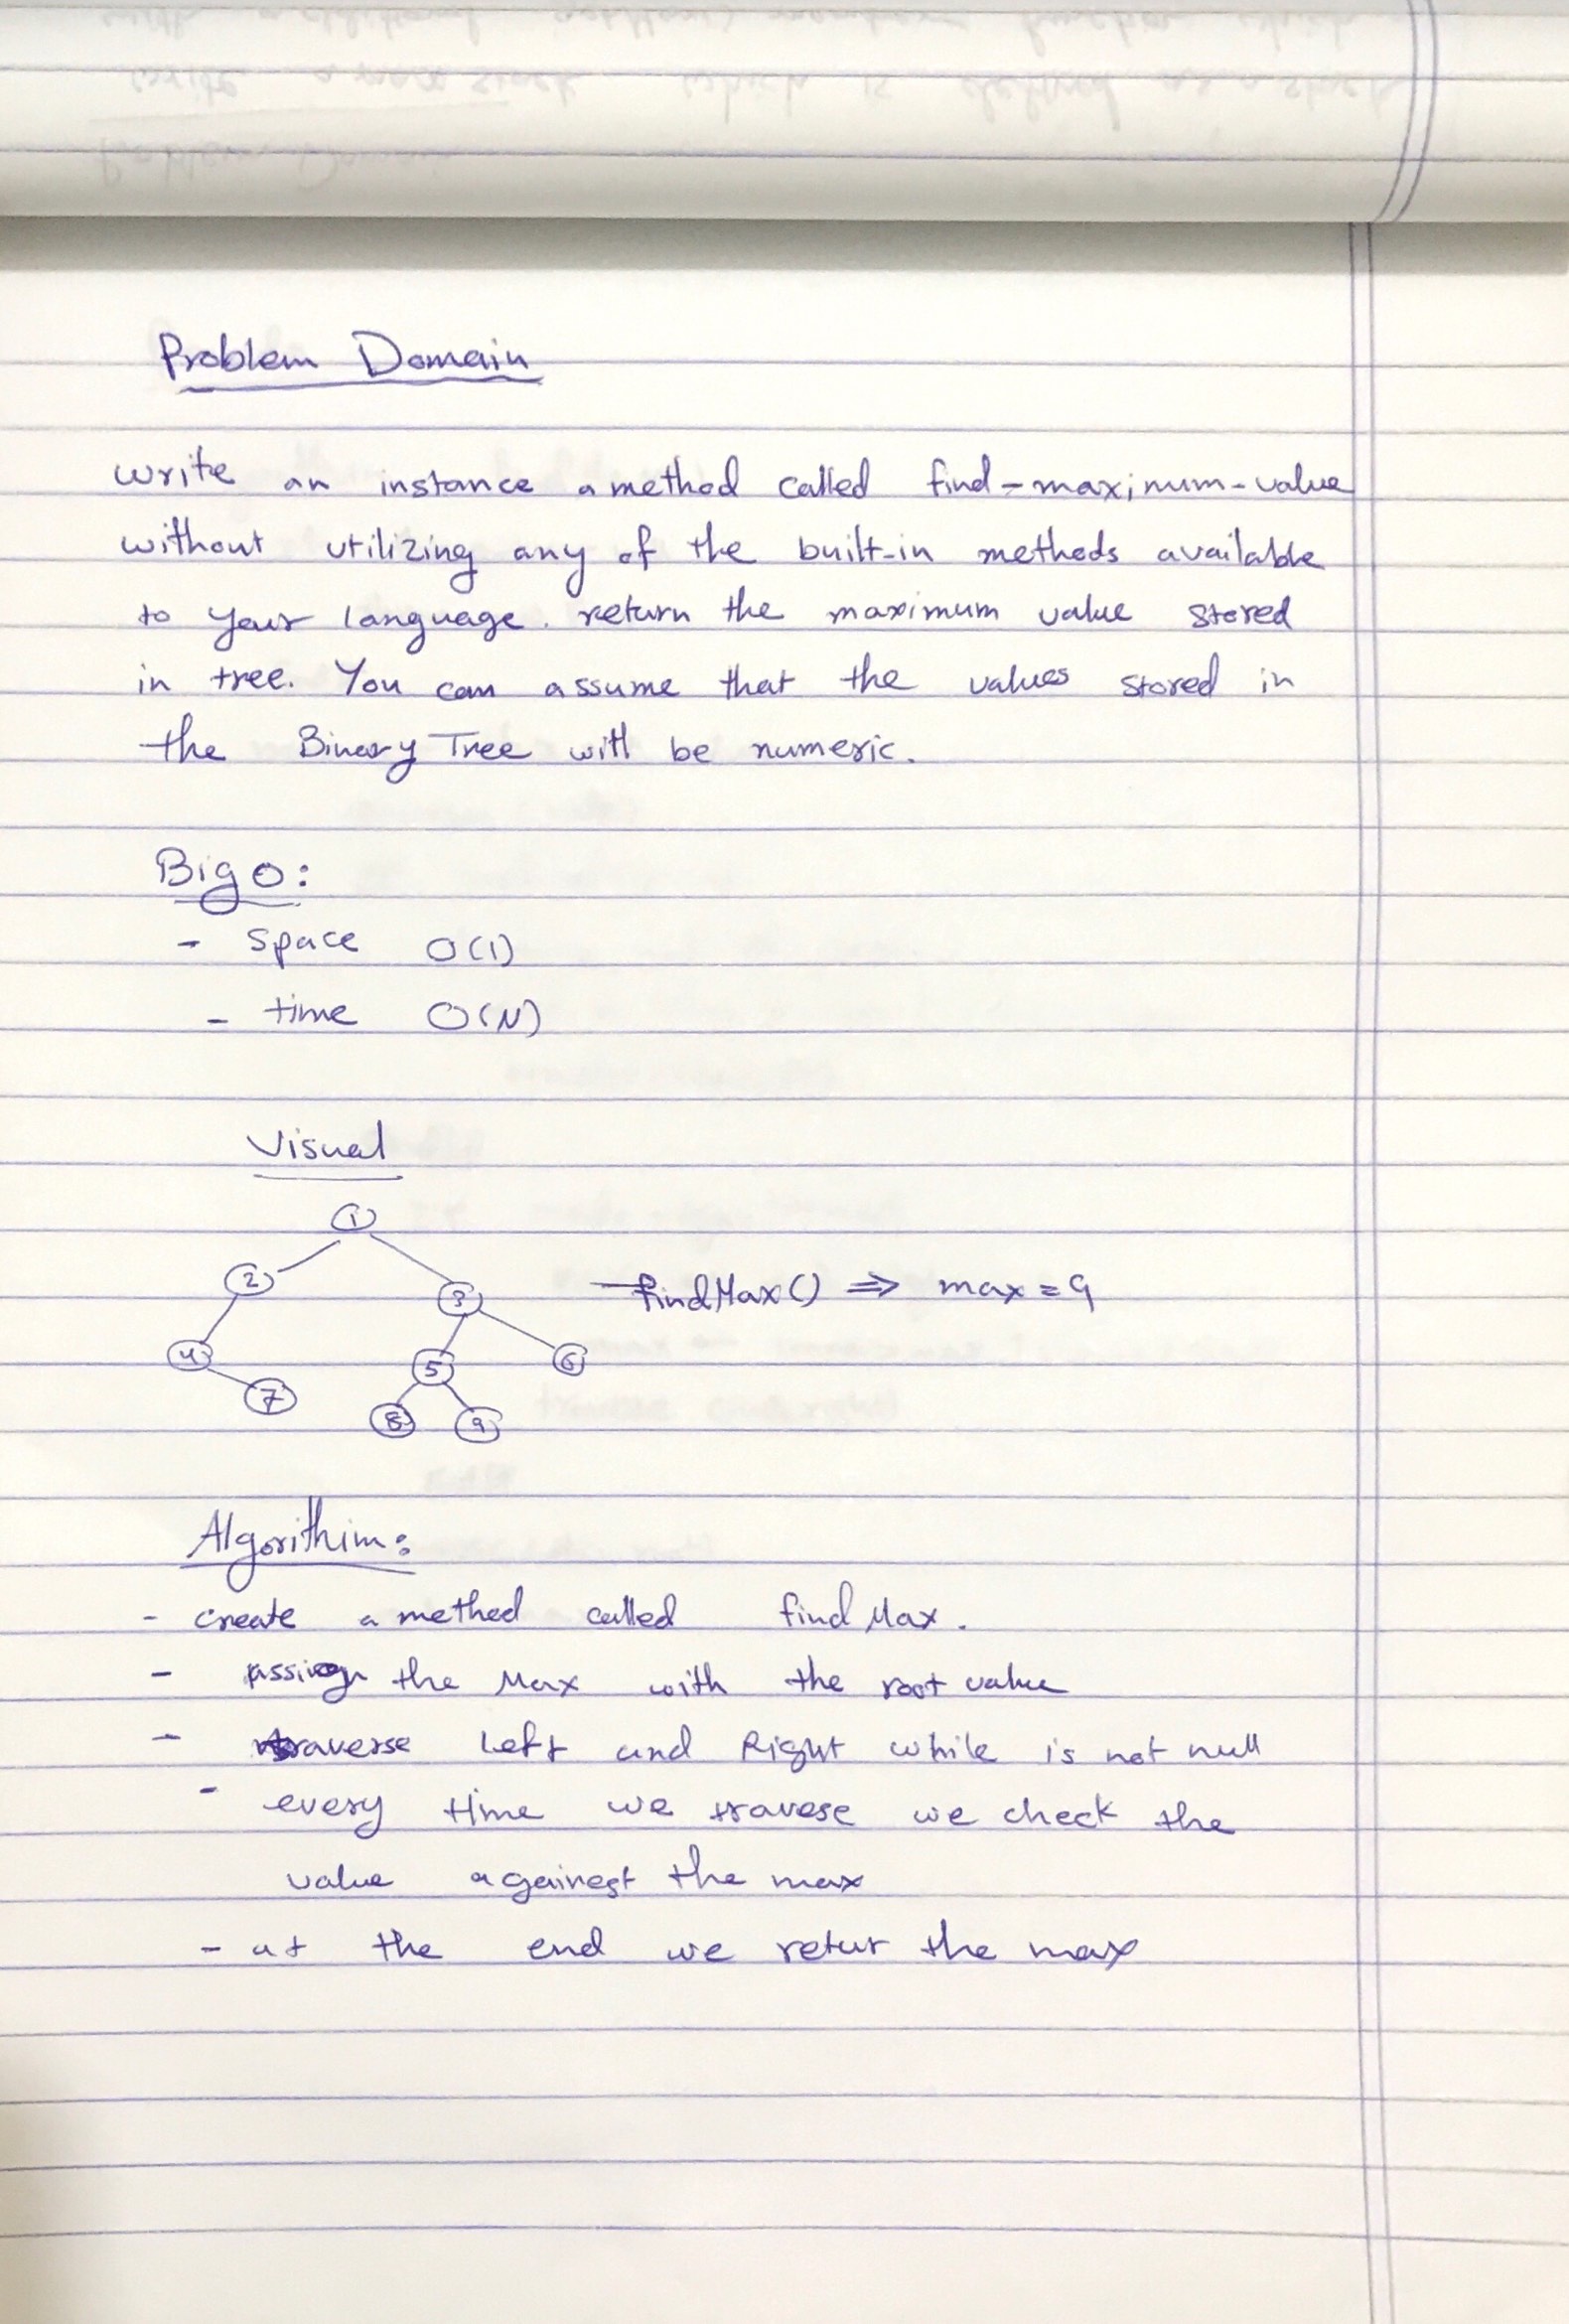 Problem Domain
write an instance a method called find-maximum-value
without utilizing any of the built-in methods available
to your language. return the maximum value stored
in tree. You can assume that the values stored in
the Binary Tree will be numeric.
Big O:
- space O(1)
- time O(N)
Visual
1
2
3
findMax() => max = 9
4
5
6
7
8
9
Algorithim:
- create a method called find Max.
- Assign the Max with the root value
- traverse Left and Right while is not null
- every time we travese we check the
value againest the max
- at the end we retur the max